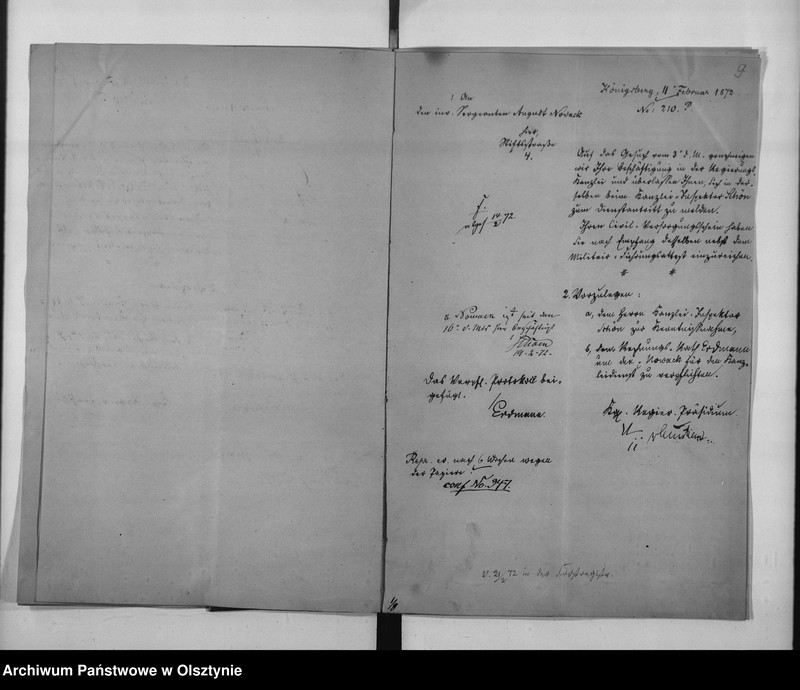 9
Königsberg, 11 Februar 1872
No: 210. P.
1. An
den inv. Sergeanten August Nowack
hier,
Stiftsstraße
4.
Auf das Gesuch vom 3 d. M. genehmigen
wir Ihre Beschäftigung in der Regierungs
Kanzlei und überlassen Ihnen, sich in der-
selben beim Kanzlei-Inspektor
zum Dienstantritt zu melden.
Ihren Civil-Versorgungsschein haben
Sie nach Empfang desselben nebst dem
Militair-Führungsattest einzureichen.
2. Vorzulegen:
a, dem Herrn Kanzlei-Inspektor
zur Kenntnißnahme,
b, dem Rechnungs-Rath Erdmann
um den Nowack für den Kanz-
leidienst zu verpflichten.
Kgl. Regier. Präsidium
72
Nowack ist seit dem
16 d. Mts hier beschäftigt
19-2-72.
Das Verpfl. Protokoll bei-
gefügt.
Erdmann.
nach 6 Wochen wegen
der Papiere.
conf No. 347.
72 in der
Archiwum Państwowe w Olsztynie